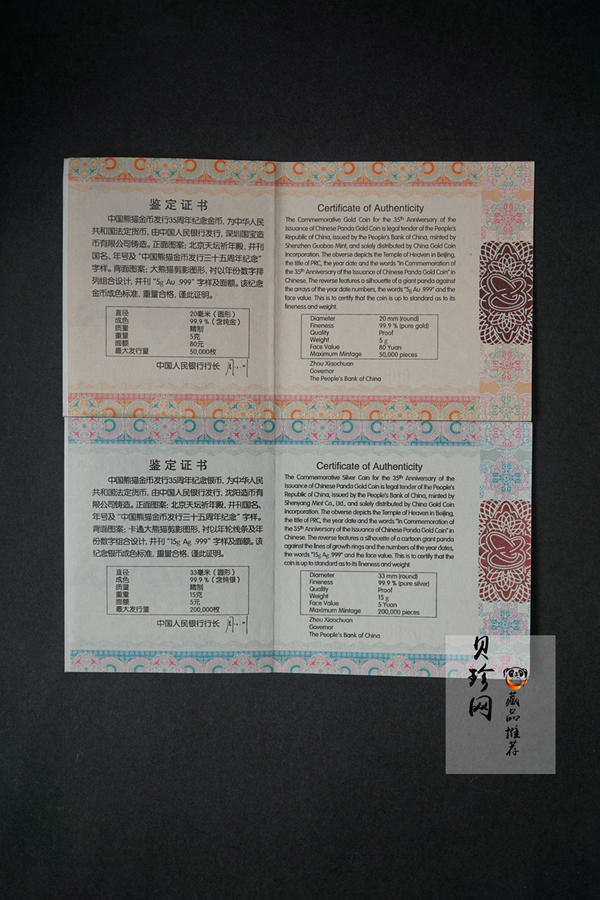 鉴定证书
中国熊猫金币发行35周年纪念金币，为中华人民
共和国法定货币，由中国人民银行发行，深圳国宝造
币有限公司铸造。正面图案：北京天坛祈年殿，并刊
国名、年号及“中国熊猫金币发行三十五周年纪念”
字样。背面图案：大熊猫剪影图形，衬以年份数字排
列组合设计，并刊“5g Au .999”字样及面额。该纪念
金币成色标准，重量合格，谨此证明。
直径 20毫米（圆形）
成色 99.9％（含纯金）
质量 精制
重量 5克
面额 80元
最大发行量 50,000枚
中国人民银行行长
Certificate of Authenticity
The Commemorative Gold Coin for the 35th Anniversary of the
Issuance of Chinese Panda Gold Coin is legal tender of the People's
Republic of China, issued by the People's Bank of China, minted by
Shenzhen Guobao Mint, and solely distributed by China Gold Coin
Incorporation. The obverse depicts the Temple of Heaven in Beijing,
the title of PRC, the year date and the words "In Commemoration of
the 35th Anniversary of the Issuance of Chinese Panda Gold Coin" in
Chinese. The reverse features a silhouette of a giant panda against
the arrays of the year date numbers, the words "5g Au .999" and the
face value. This is to certify that the coin is up to standard as to its
fineness and weight.
Diameter 20 mm (round)
Fineness 99.9 % (pure gold)
Quality Proof
Weight 5 g
Face Value 80 Yuan
Maximum Mintage 50,000 pieces
Zhou Xiaochuan
Governor
The People's Bank of China
鉴定证书
中国熊猫金币发行35周年纪念银币，为中华人民
共和国法定货币，由中国人民银行发行，沈阳造币有
限公司铸造。正面图案：北京天坛祈年殿，并刊国名、
年号及“中国熊猫金币发行三十五周年纪念”字样。
背面图案：卡通大熊猫剪影图形，衬以年轮线条及年
份数字组合设计，并刊“15g Ag .999”字样及面额。该
纪念银币成色标准，重量合格，谨此证明。
直径 33毫米（圆形）
成色 99.9％（含纯银）
质量 精制
重量 15克
面额 5元
最大发行量 200,000枚
中国人民银行行长
Certificate of Authenticity
The Commemorative Silver Coin for the 35th Anniversary of the
Issuance of Chinese Panda Gold Coin is legal tender of the People's
Republic of China, issued by the People's Bank of China, minted by
Shenyang Mint Co., Ltd., and solely distributed by China Gold Coin
Incorporation. The obverse depicts the Temple of Heaven in Beijing,
the title of PRC, the year date and the words "In Commemoration of
the 35th Anniversary of the Issuance of Chinese Panda Gold Coin" in
Chinese. The reverse features a silhouette of a cartoon giant panda
against the lines of growth rings and the numbers of the year dates,
the words "15g Ag .999" and the face value. This is to certify that the
coin is up to standard as to its fineness and weight.
Diameter 33 mm (round)
Fineness 99.9 % (pure silver)
Quality Proof
Weight 15 g
Face Value 5 Yuan
Maximum Mintage 200,000 pieces
Zhou Xiaochuan
Governor
The People's Bank of China
贝珍网
藏品推荐